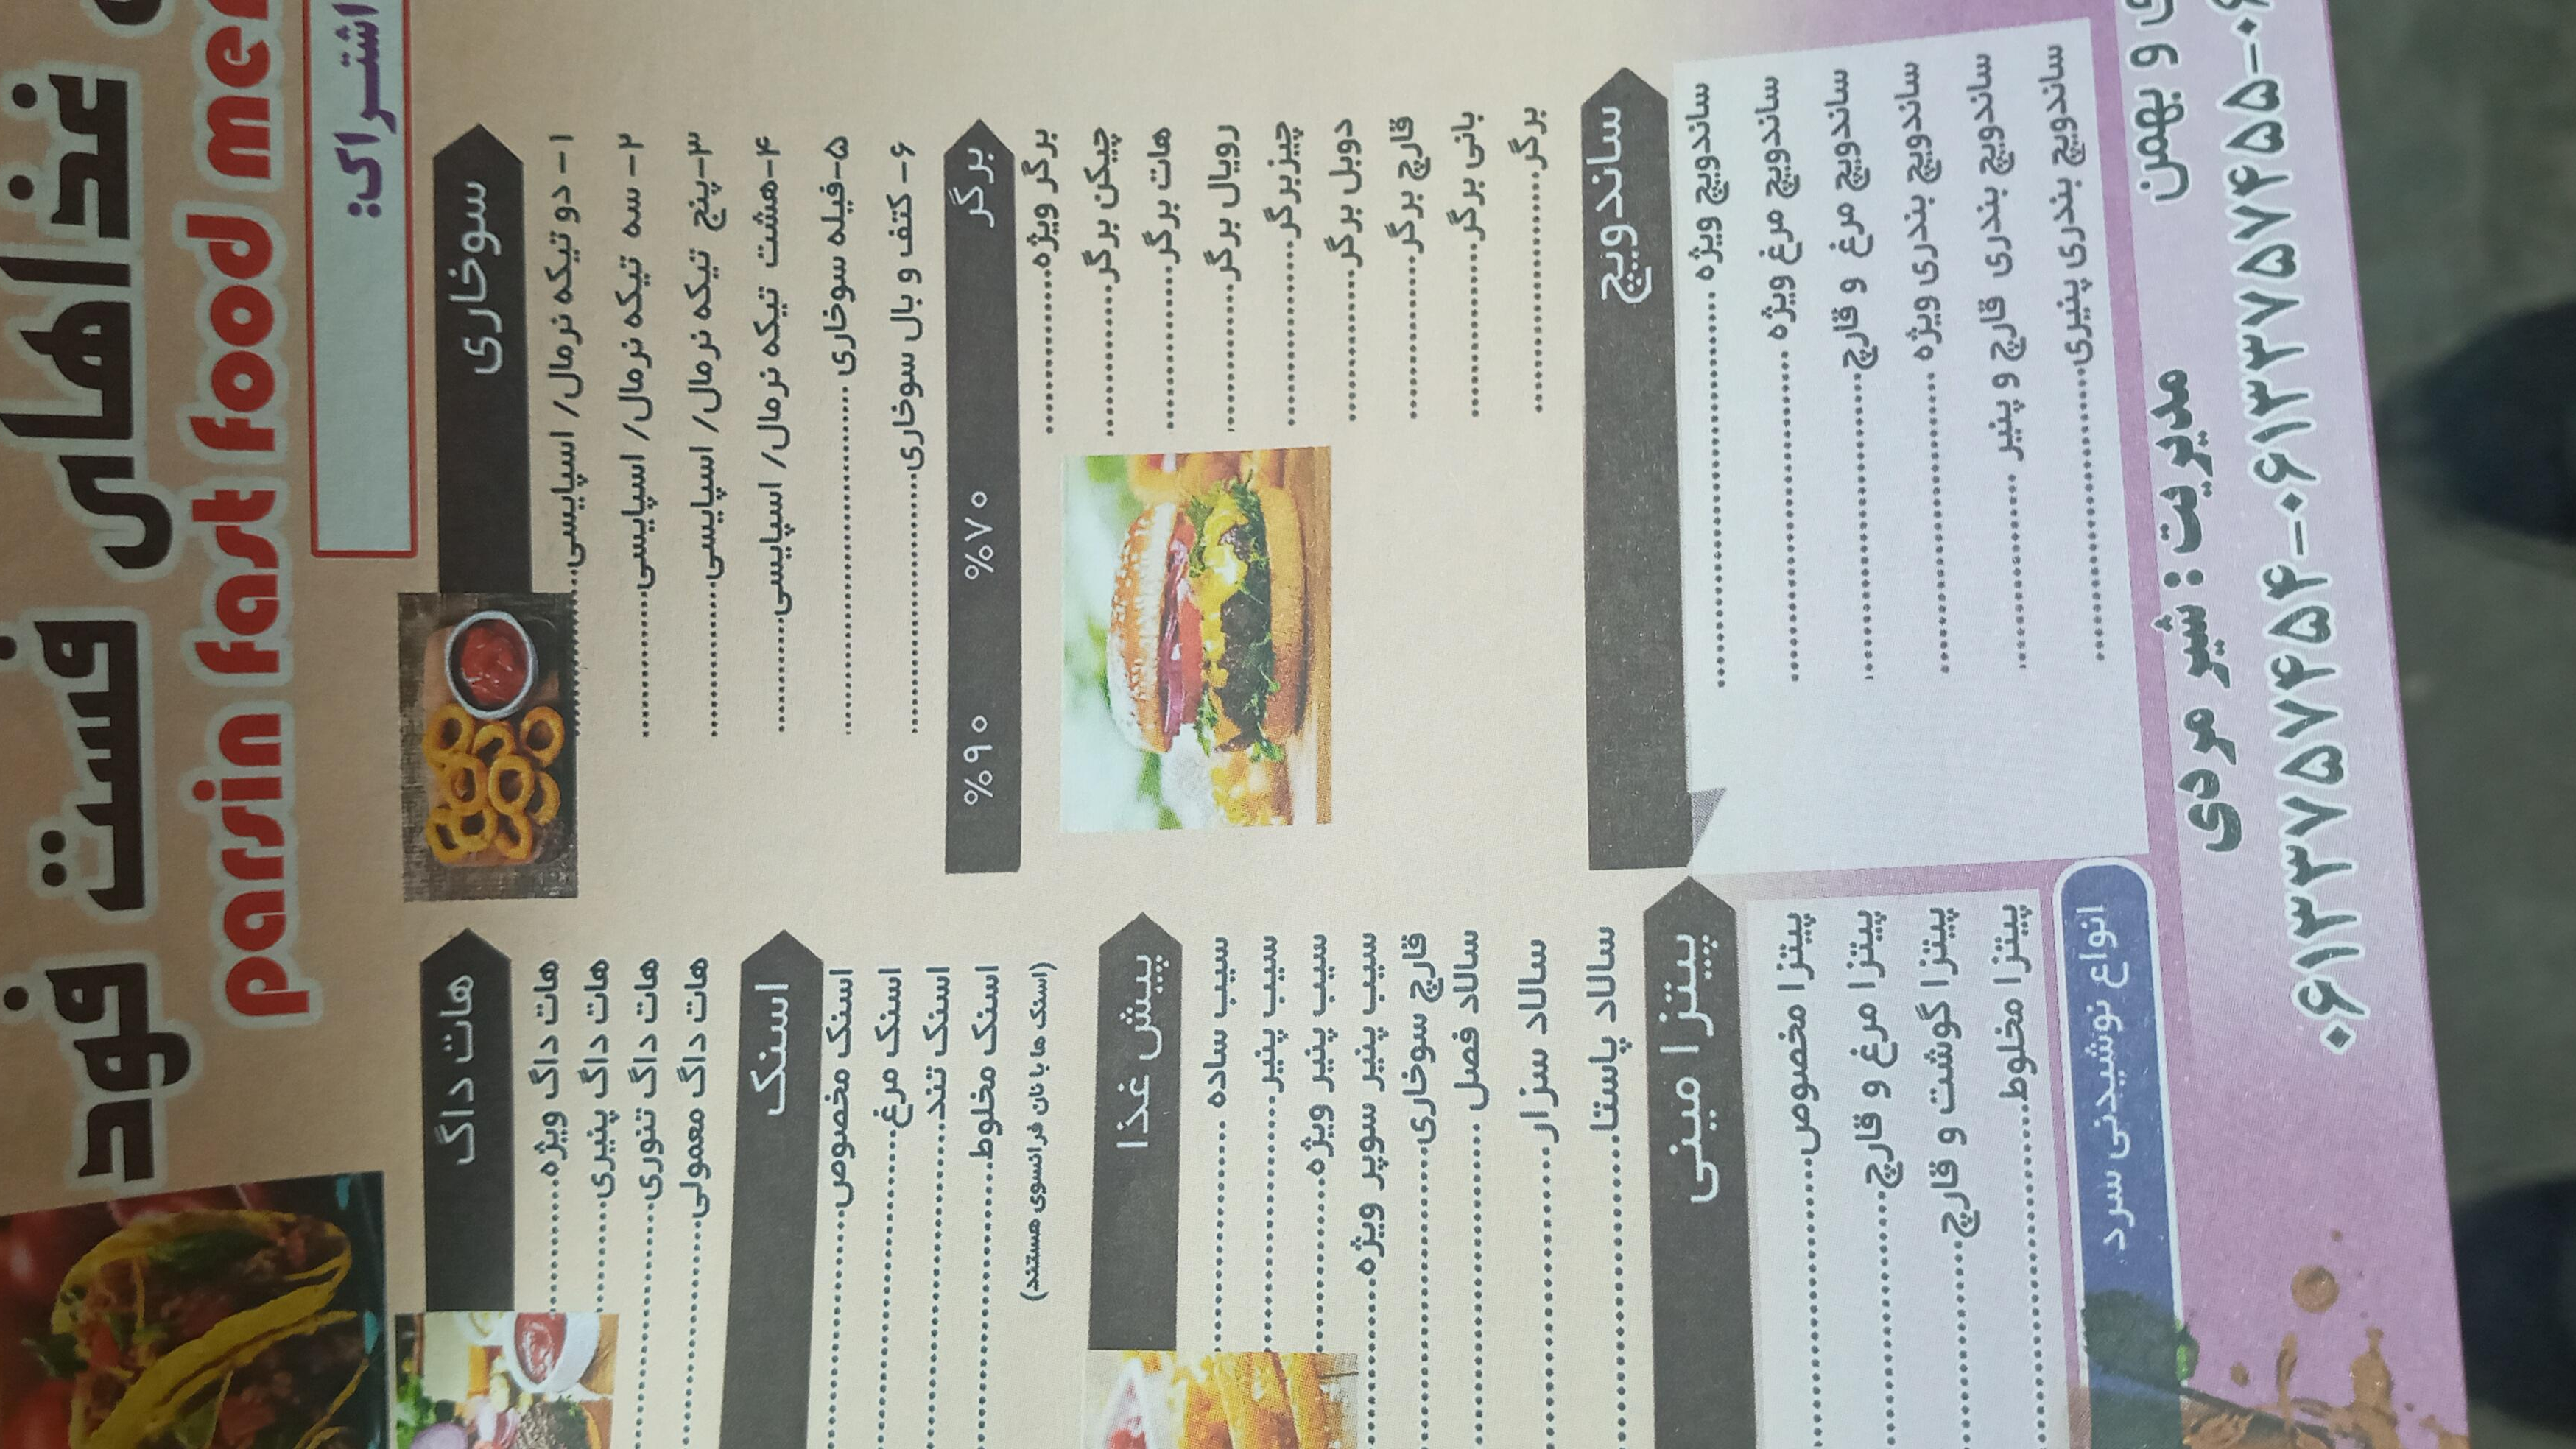 غذاهای فست فود
parsin fast food me
اشتراک:
سوخاری
۱- دو تیکه نرمال/ اسپایسی
۲- سه تیکه نرمال/ اسپایسی
۳-پنج تیکه نرمال/ اسپایسی
۴-هشت تیکه نرمال/ اسپایسی
۵-فیله سوخاری
۶- کتف و بال سوخاری
برگر ۷۰% ۹۰%
برگر ویژه
چیکن برگر
هات برگر
رویال برگر
چیزبرگر
دوبل برگر
قارچ برگر
بانی برگر
برگر
ساندویچ
ساندویچ ویژه
ساندویچ مرغ ویژه
ساندویچ مرغ و قارچ
ساندویچ بندری ویژه
ساندویچ بندری قارچ و پنیر
ساندویچ بندری پنیری
هات داگ
هات داگ ویژه
هات داگ پنیری
هات داگ تنوری
هات داگ معمولی
اسنک
اسنک مخصوص
اسنک مرغ
اسنک تند
اسنک مخلوط
(اسنک ها با نان فرانسوی هستند)
پیش غذا
سیب ساده
سیب پنیر
سیب پنیر ویژه
سیب پنیر سوپر ویژه
قارچ سوخاری
سالاد فصل
سالاد سزار
سالاد پاستا
پیتزا مینی
پیتزا مخصوص
پیتزا مرغ و قارچ
پیتزا گوشت و قارچ
پیتزا مخلوط
انواع نوشیدنی سرد
و بهمن
مدیریت : شیر مردی
۰۶۱۳۳۷۵۷۴۵۴-۰۶۱۳۳۷۵۷۴۵۵-۰